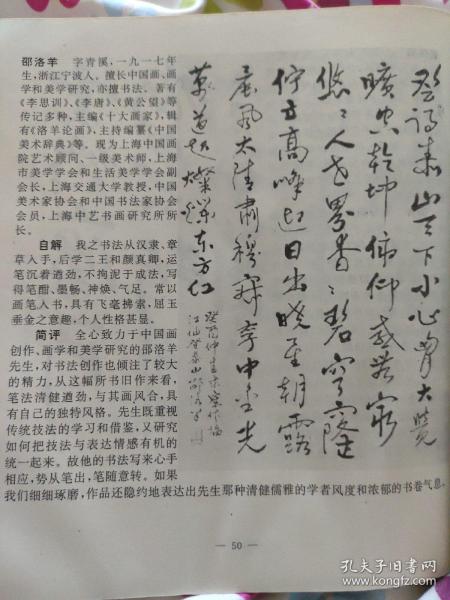 邵洛羊 字青溪，一九一七年
生，浙江宁波人。擅长中国画、画
学和美学研究，亦擅书法。著有
《李思训》、《李唐》、《黄公望》等
传记多种，主编《十大画家》，辑
有《洛羊论画》、主持编纂《中国
美术辞典》等。现为上海中国画
院艺术顾问、一级美术师，上海
市美学学会和生活美学学会副
会长，上海交通大学教授，中国
美术家协会和中国书法家协会
会员，上海中艺书画研究所所
长。
自解 我之书法从汉隶、章
草入手，后学二王和颜真卿，运
笔沉着遒劲，不拘泥于成法，写
得笔酣、墨畅、神焕、气足。常以
画笔入书，具有飞毫拂素，屈玉
垂金之意趣，个人性格甚显。
简评 全心致力于中国画
创作、画学和美学研究的邵洛羊
先生，对书法创作也倾注了较大
的精力，从这幅所书旧作来看，
笔法清健遒劲，与其画风合，具
有自己的独特风格。先生既重视
传统技法的学习和借鉴，又研究
如何把技法与表达情感有机的
统一起来。故他的书法写来心手
相应，势从笔出，笔随意转。如果
我们细细琢磨，作品还隐约地表达出先生那种清健儒雅的学者风度和浓郁的书卷气息。
登得泰山天下小心胸大覺
曠宇乾坤俯仰感無窮
悠悠人世界杳杳碧穹隆
佇立高峰迎日出曉星朝露
晨風太清肅穆寂寥中金光
萬道起燦爛東方紅
— 50 —
孔夫子旧书网
www.kongfz.com